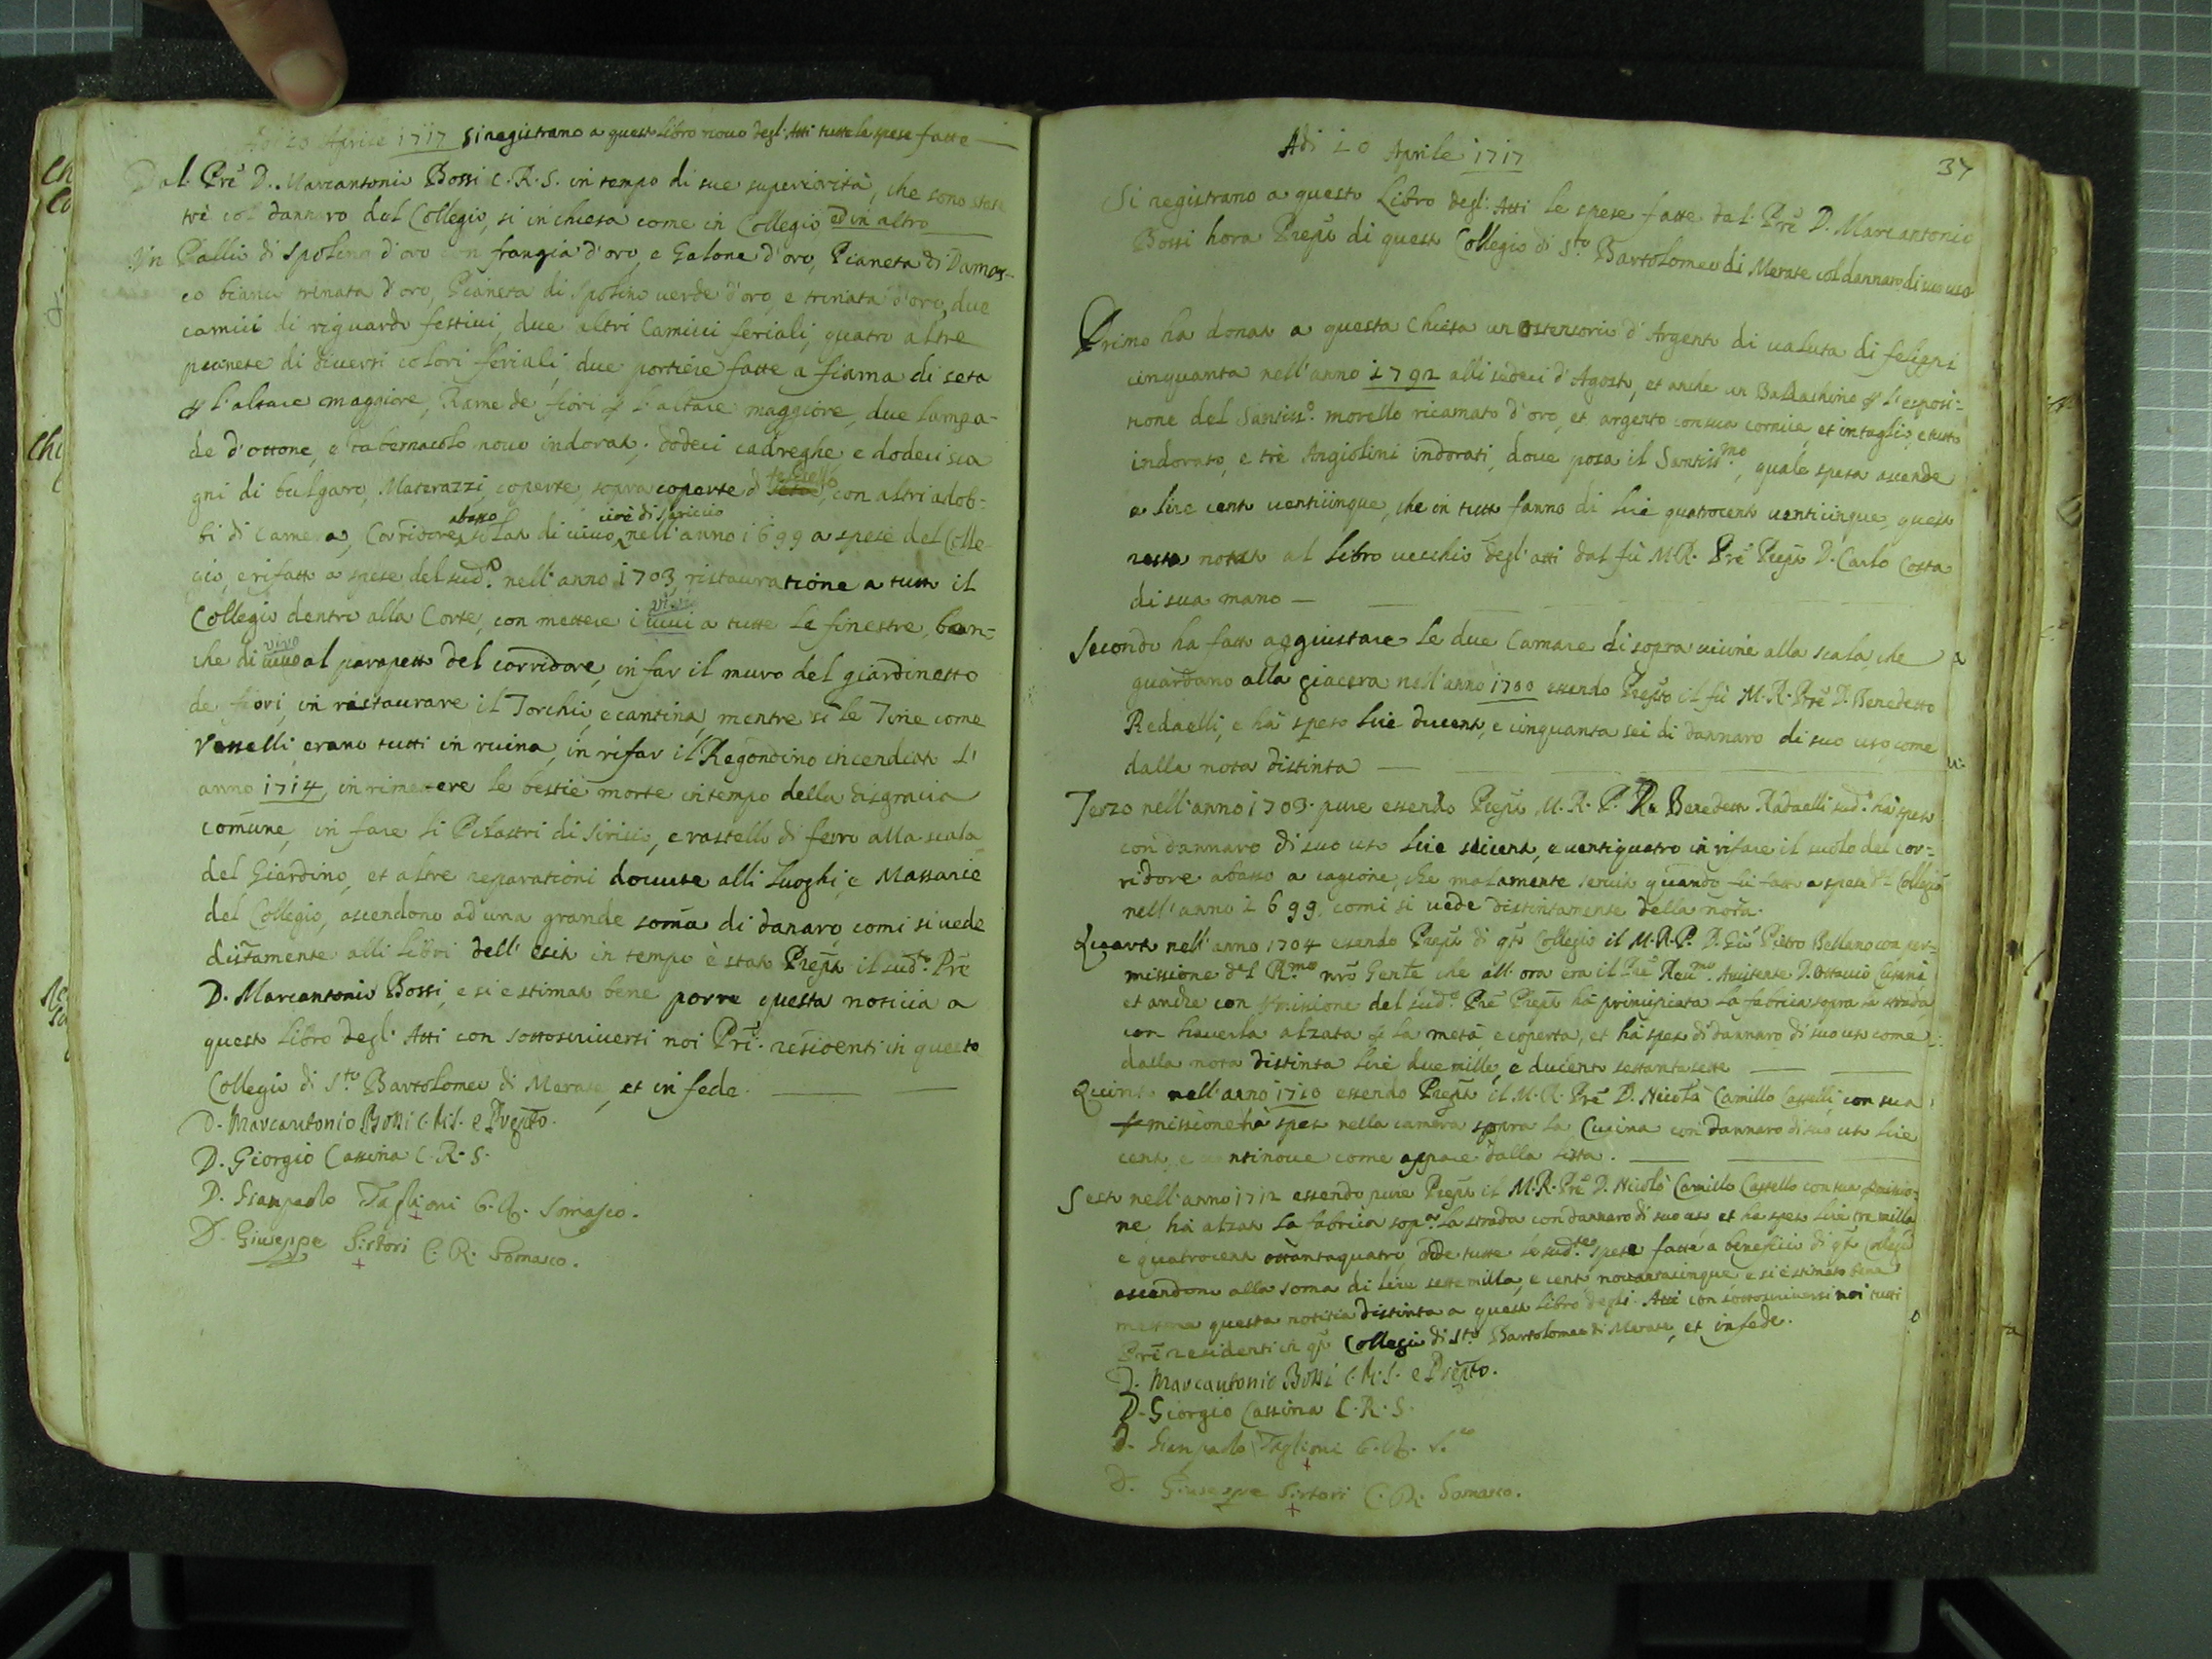 Adi 20 Aprile 1717 si registrano a questo libro nouo degl'Atti tutte le spese fatte
Dal Prē D. Marcantonio Bossi C.R.S. in tempo di sue superiorità, che sono state
trè col dannaro del Collegio, si in chiesa come in Collegio ed in altro
Vn Pallio di Spolino d'oro con frangia d'oro, e Galone d'oro, Pianeta di Damas-
co bianco trinata d'oro, Pianeta di spolino uerde d'oro, e trinata d'oro, due
camici di riguardo festiui, due altri Camici feriali, quatro altre
pianete di diuersi colori feriali, due portiere fatte a fiama di seta
p l'altare maggiore, Rame de fiori p l'altare maggiore, due lampa-
de d'ottone, e tabernacolo nouo indorato, dodeci cadreghe e dodeci sca
gni di bulgaro, Materazzi, coperte, sopra coperte d con altri adob-
bi di Camera, Corridore abasso solato di uiuo cioè di sariccio nell'anno 1699 a spese del Colle-
gio, e rifatto a spese del sud.o nell'anno 1703, ristauratione a tutto il
Collegio dentro alla Corte, con mettere i uiui viui a tutte le finestre, ban-
che di uiuo vivo al parapetto del corridore, in far il muro del giardinetto
de fiori, in ristaurare il Torchio, e cantina, mentre sì le Tine come
Vasselli erano tutti in ruina, in rifar il Regondino incendiato l'
anno 1714, in rimettere le bestie morte in tempo della disgracia
comune, in fare li Pilastri di sirisio, e rastello di ferro alla scala
del Giardino, et altre reparationi douute alli Luoghi, e Massarie
del Collegio, ascendono ad una grande soma di danaro, comi si uede
distamente alli libri dell'esito in tempo è stato Prepto il sud.to Prē
D. Marcantonio Bossi, e si e stimato bene porre questa noticia a
questo libro degl'Atti con sottoscriuersi noi Pri. residenti in questo
Collegio di S.to Bartolomeo di Merate, et in fede.
D. Marcantonio Bossi C.R.S. e Prepto.
D. Giorgio Cassina C.R.S.
D. Gianpaolo Taglioni C.R. Somasco.
D. Giuseppe Sirtori C.R. Somasco.
37
Adi 20 Aprile 1717
Si registrano a questo Libro degl'Atti le spese fatte dal Prē D. Marcantonio
Bossi hora Prepto di questo Collegio di S.to Bartolomeo di Merate col dannaro di suo uso
Primo ha donato a questa Chiesa un Ostensorio d'Argento di ualuta di felippi
cinquanta nell'anno 1792 alli sedeci d'Agosto, et anche un Baldachino p l'esposi-
tione del Santiss.o morello ricamato d'oro, et argento con sua cornice, et intaglio, e tutto
indorato, e trè Angiolini indorati, doue posa il Santiss.mo, quale spesa ascende
a lire cento uenticinque, che in tutto fanno di lire quatrocento uenticinque, questo
resta notato al libro uecchio degl'atti dal fù M.R. Prē Prepto D. Carlo Costa
di sua mano
Secondo ha fatto aggiustare le due Camare di sopra uicine alla scala, che
guardano alla giacera nell'anno 1700 essendo Prepto il fù M.R. Prē D. Benedetto
Redaelli, e hà speso lire ducento, e cinquanta sei di dannaro di suo uso, come
dalla nota distinta
Terzo nell'anno 1703. pure essendo Prepto M.R.P. D. Benedetto Radaelli sud.o hà speso
con dannaro di suo uso lire seicento, e uentiquatro in rifare il suolo del cor-
ridore abasso a cagione, che malamente seruito quando fù fatto a spese del Collegio
nell'anno 1699. comi si uede distintamente della nota.
Quarto nell'anno 1704 essendo Prepto di qto Collegio il M.R.P. D. Gio Pietro Bellano con per-
missione del R.mo nrō Genle che all'ora era il Prē Reu.mo Assistente D. Ottauio Cusani
et anche con pmissione del sud.o Prē Prepto hà principiata la fabrica sopra la strada,
con hauerla alzata p la metà, e coperta, et hà speso di dannaro di suo uso come
dalla nota distinta lire due mille, e ducento settanta sette
Quinto nell'anno 1710 essendo Prepto il M.R. Prē D. Nicolà Camillo Casselli con sua
pmissione hà speso nella camera sopra la Cucina con dannaro di suo uso lire
cento, e uentinoue come appare dalla lista.
Sesto nell'anno 1712 essendo pure Prepto il M.R. Prē D. Nicolò Camillo Castello con sua pmissio-
ne, hà alzato la fabrica sop.a la strada con dannaro di suo uso et ha speso lire tre milla
e quatrocento ottantaquatro, doue tutte le sud.te spese fatte a beneficio di qto Collegio
ascendono alla soma di lire sette milla, e cento nouantacinque e si è stimato bene
mettere questa notitia distinta a questo libro degli Atti con sottoscriuersi noi tutti
Pri residenti in qto Collegio di S.to Bartolomeo di Merate, et in fede.
D. Marcantonio Bossi C.R.S. e Prepto.
D. Giorgio Cassina C.R.S.
D. Gianpaolo Taglioni C.R. S.co
D. Giuseppe Sirtori C.R. Somasco.